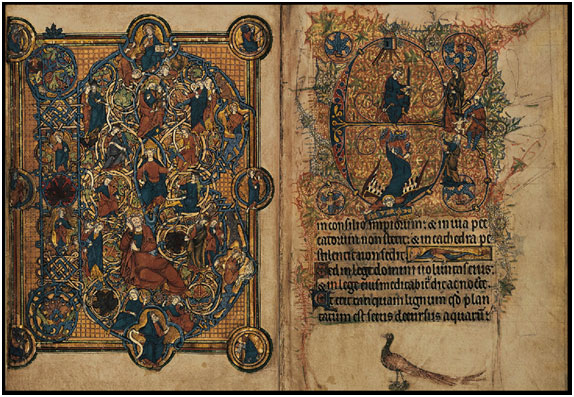 in consilio impiorum: & in uia pec
catorum non stetit: & in cathedra pe
stilentie non sedit.
Sed in lege domini uoluntas eius:
& in lege eius meditabit' die ac nocte.
Et erit tanquam lignum qd plan
tatum est secus decursus aquarum: